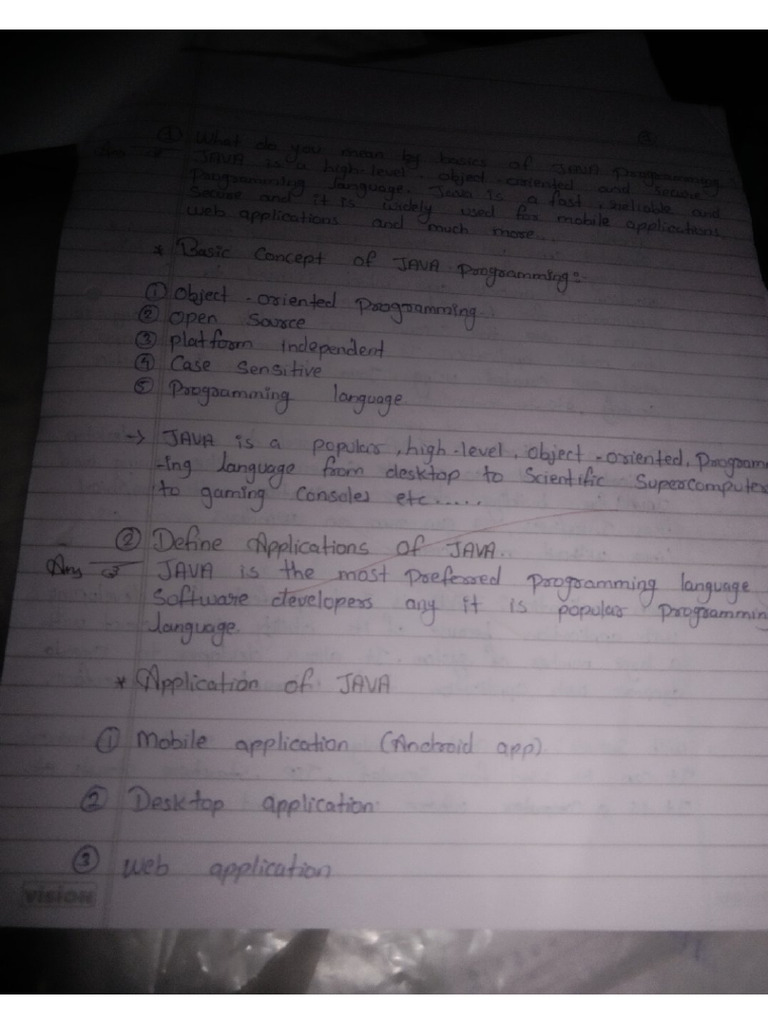 ① What do you mean by basics of JAVA Programming.
Ans JAVA is a high-level, object-oriented and secure
Programming language. Java is a fast, reliable and
Secure and it is widely used for mobile applications
web applications and much more...
* Basic Concept of JAVA Programming:-
① Object-oriented Programming
② Open Source
③ platform independent
④ Case Sensitive
⑤ Programming language
→ JAVA is a popular, high-level, object-oriented, Program
-ing language from desktop to Scientific Supercomputer
to gaming Consoles etc.....
② Define Applications of JAVA..
Ans JAVA is the most preferred programming language
Software developers any it is popular programmin
language
* Application of JAVA
① Mobile application (Android app)
② Desktop application
③ web application
VISION